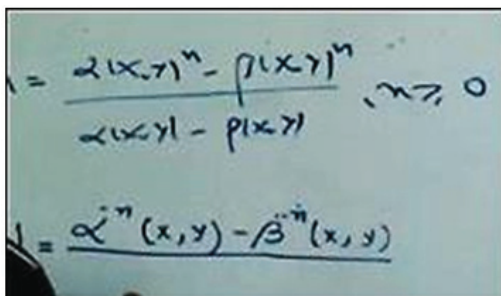 = α(x,y)ⁿ - β(x,y)ⁿ / α(x,y) - β(x,y) , n ≥ 0
= α⁻ⁿ(x,y) - β⁻ⁿ(x,y)